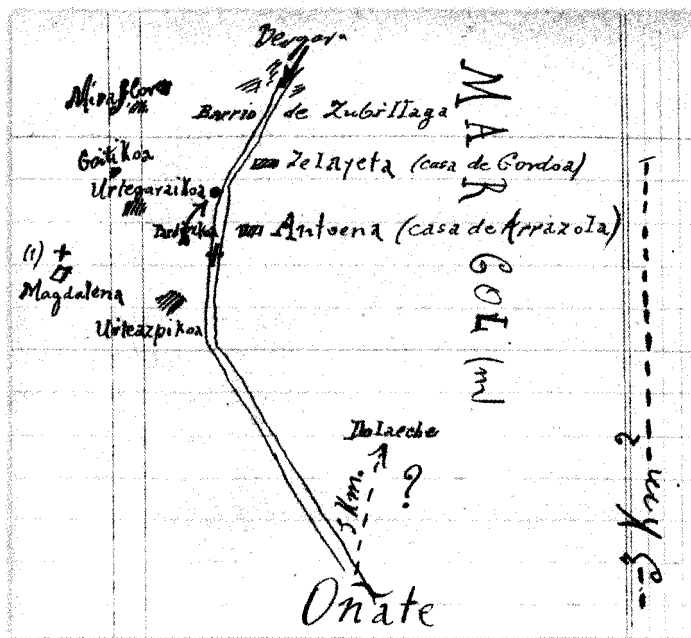 Vergara
Miraflores
Barrio de Zubillaga
Goitikoa
Zelayeta (casa de Gordoa)
Urtegaraikoa
Antoena (casa de Arrazola)
(1)
Magdalena
Urteazpikoa
MARGOL (m)
Dolaeche
3 Km.
?
Oñate